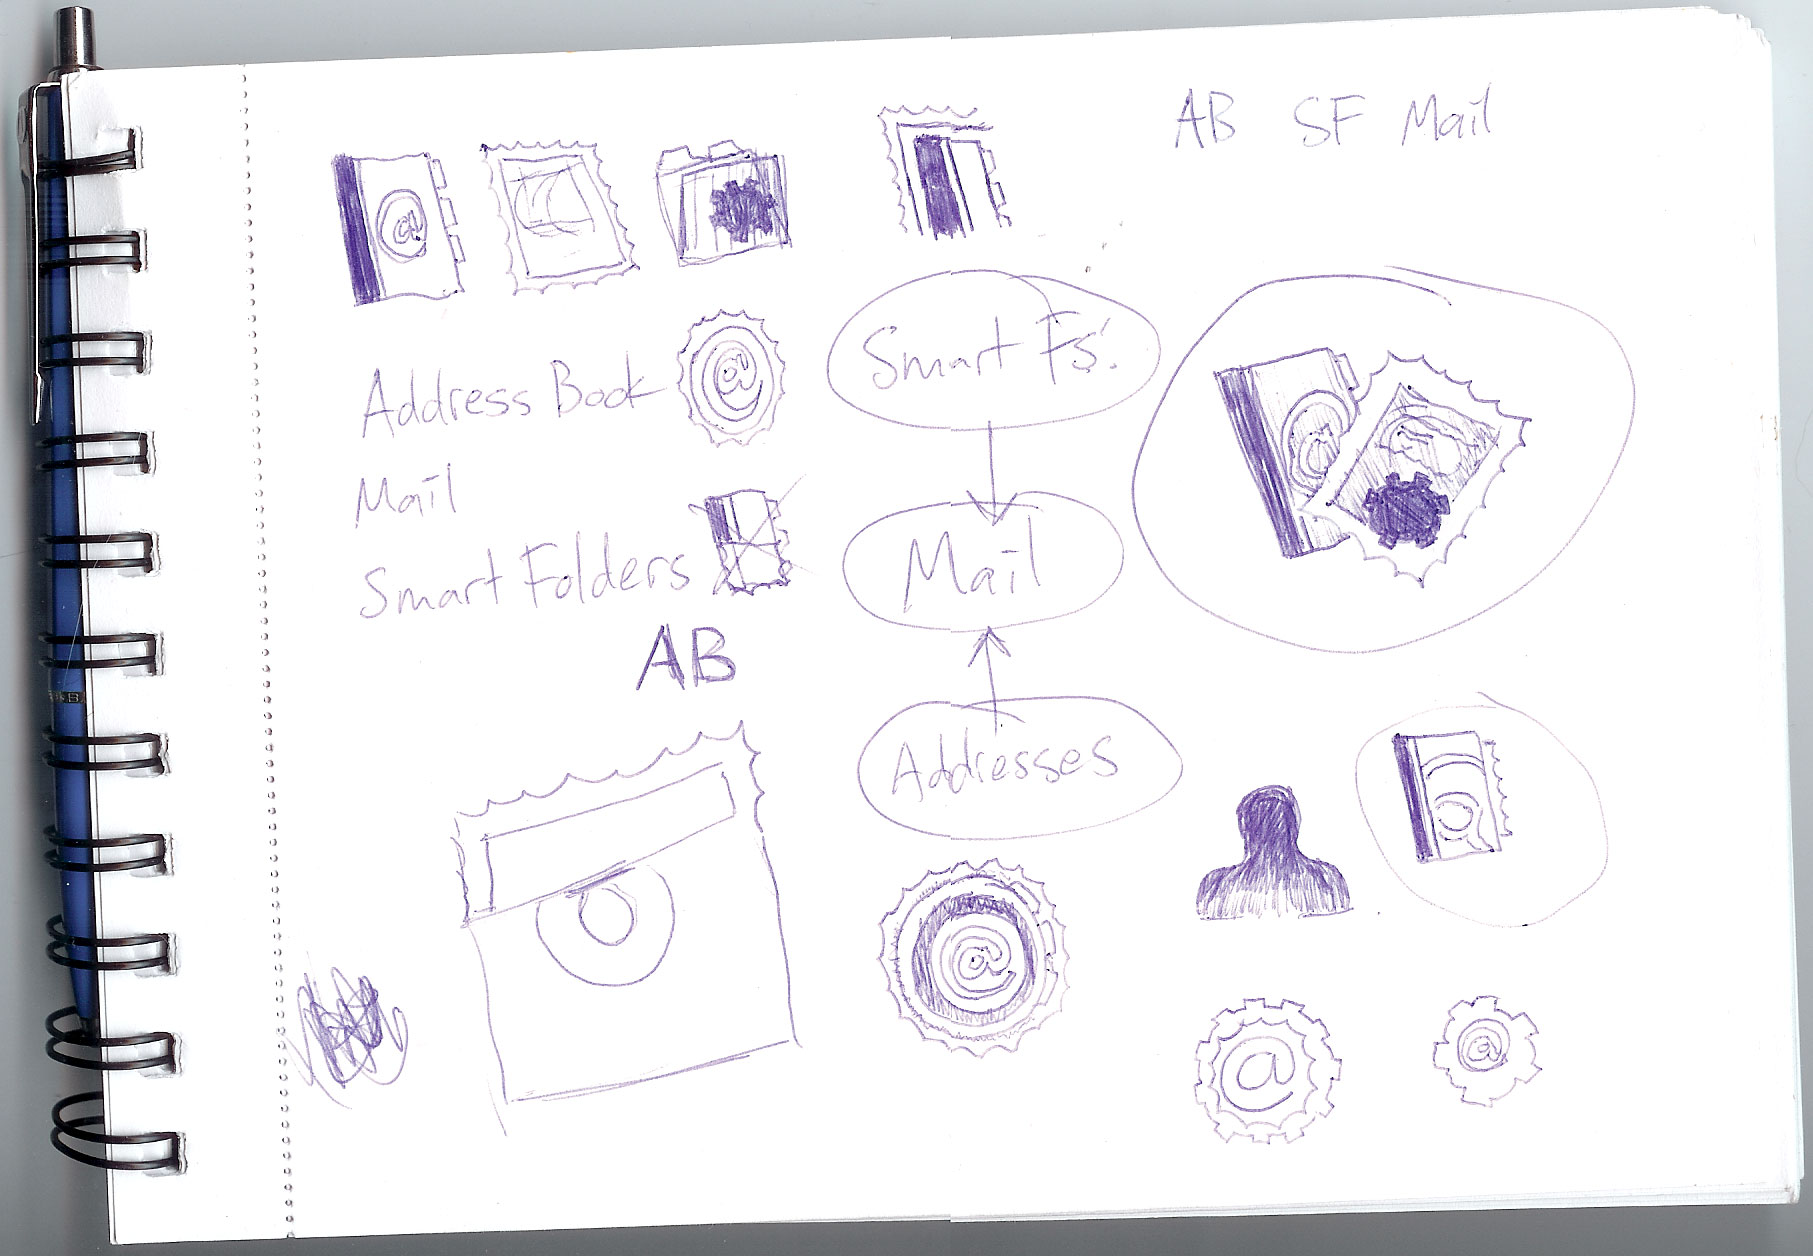 AB SF Mail
@
@
Address Book
Mail
Smart Folders
AB
Smart Fs.
Mail
Addresses
@
@
@